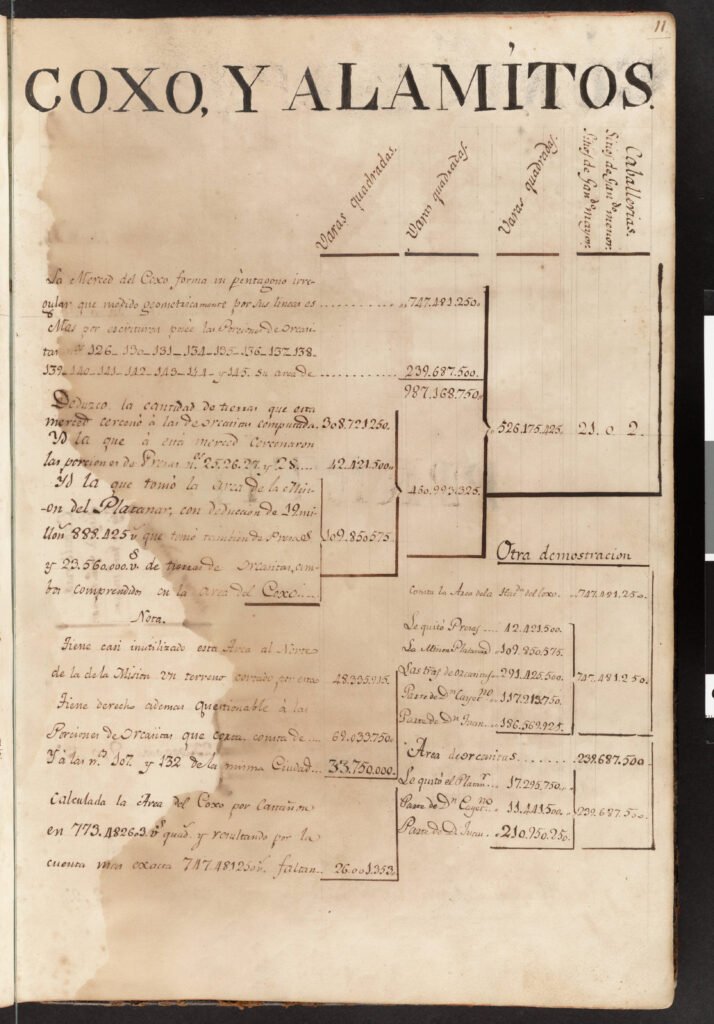 11
COXO, Y ALAMITOS.
Varas quadradas.
Varas quadradas.
Varas quadradas.
Caballerias.
Sitios de Gan.do menor.
Sitios de Gan.do mayor.
La Merced del Coxo forma un pentagono irre-
gular que medido geometricamente por sus lineas es .......... 747.481.250.
Mas por escrituras posée las Porciones de Orcasi-
tas n.os 126_130_131_134_135_136_137_138_
139_140_141_142_143_144_ y 145. su area de .......... 239.687.500.
987.168.750.
Deduzco la cantidad de tierras que esta
merced cercenó á las de Orcasitas computada. 308.721.250.
526.175.425. 21. 0. 2.
Yd la que á esta merced cercenaron
las porciones de Presas n.os 25.26.27. y 28. .... 42.421.500.
460.993.325.
Yd la que tomó la area de la Misi-
on del Platanar, con deduccion de 19 mi-
llon.s 888.425 v.s que tomó tambien de Presas
109.850.575.
y 23.560.000. v.s de tierras de Orcasitas, am-
bos comprendidos en la area del Coxo.
Nota.
Tiene casi inutilizado esta Area al Norte
de la de la Mision un terreno cortado por esta 48.335.915.
Tiene derecho ademas questionable á las
Porciones de Orcasitas que consta de ... 69.033.750.
Y á las n.os 107. y 132 de la misma Ciudad 33.750.000.
Calculada la Area del Coxo por Cantañon
en 773.482603. v.s quad.s y resultando por la
cuenta mas exacta 747.481250 v.s faltan.. 26.001.353.
Otra demostracion
Consta la Area de la Haz.da del Coxo. .. 747.481.250.
Le quitó Presas .... 42.421.500.
La Mision Platanar 109.850.575.
Las tras de Orcasitas 291.425.500. 747.481.250.
Parte de D.n Cayet.no 117.213.750.
Parte de D.n Juan .. 186.569.925.
Area de Orcasitas ........ 239.687.500.
Le quitó el Platan.r 17.295.750.
Parte de D.n Cayet.no 11.441.500. 239.687.500.
Parte de D. Juan .. 210.950.250.